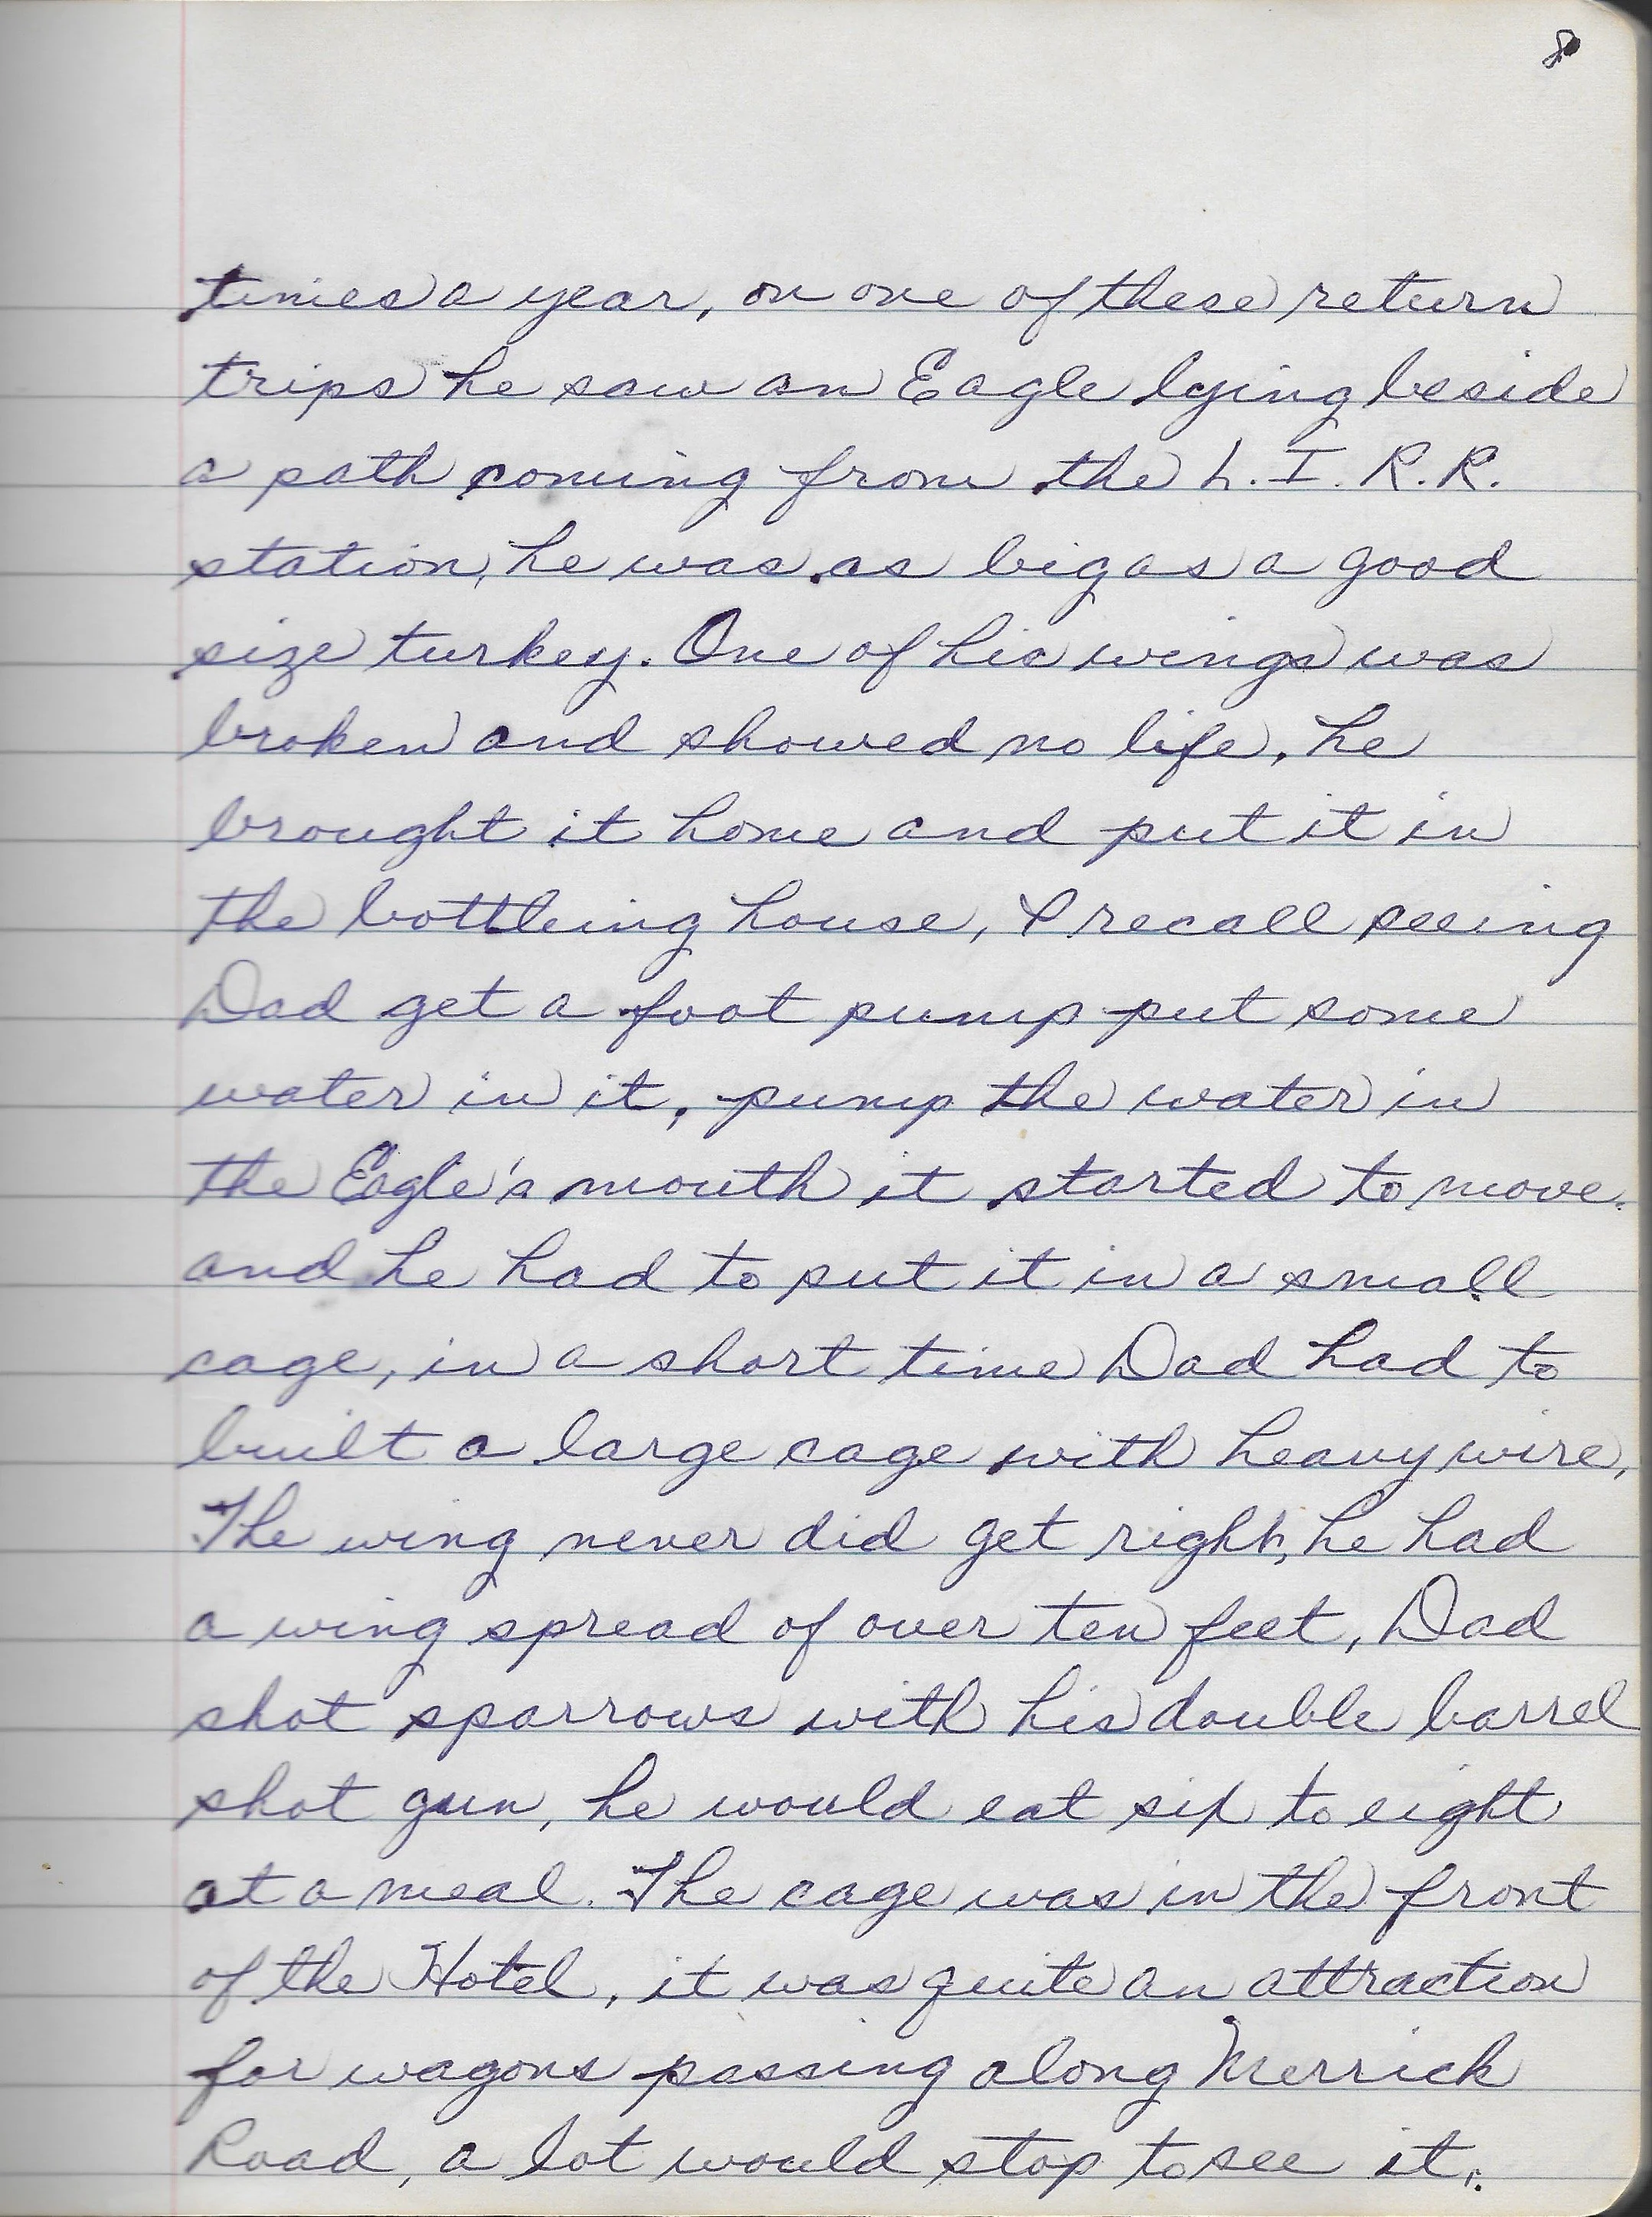 8
times a year, on one of these return
trips he saw an Eagle lying beside
a path coming from the L.I.R.R.
station, he was as big as a good
size turkey. One of his wings was
broken and showed no life, he
brought it home and put it in
the bottleing house, I recall seeing
Dad get a foot pump put some
water in it, pump the water in
the Eagle's mouth it started to move.
and he had to put it in a small
cage, in a short time Dad had to
built a large cage with heavy wire,
The wing never did get right, he had
a wing spread of over ten feet, Dad
shot sparrows with his double barrel
shot gun, he would eat six to eight
at a meal. The cage was in the front
of the Hotel, it was quite an attraction
for wagons passing along Merrick
Road, a lot would stop to see it.